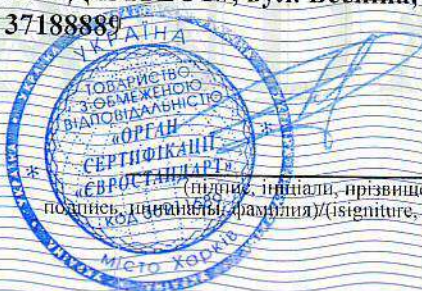 вул.
37188889
УКРАЇНА
ТОВАРИСТВО
З ОБМЕЖЕНОЮ
ВІДПОВІДАЛЬНІСТЮ
«ОРГАН
СЕРТИФІКАЦІЇ
«ЄВРОСТАНДАРТ»
КОД
місто Харків
(підпис, ініціали, прізвище
подпись, инициалы, фамилия)/(isigniture,